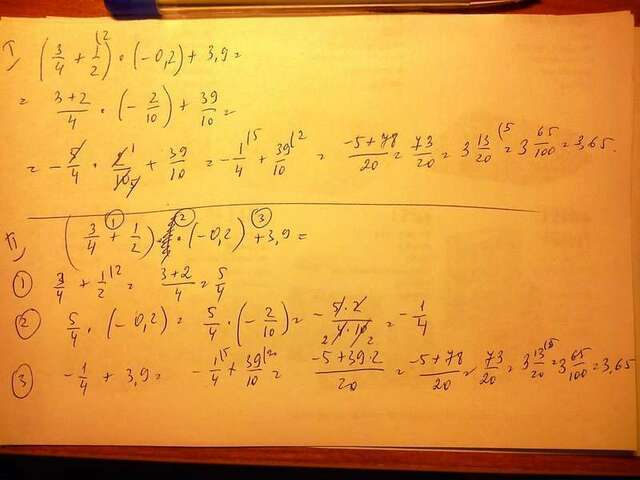 I) (3/4 + 1/2 (2) · (-0,2) + 3,9 =
= 3+2/4 · (-2/10) + 39/10 =
= -5/4 · 2 1/10 5 + 39/10 = -1/4 (5 + 39/10 (2 = -5+78/20 = 73/20 = 3 13/20 (5 = 3 65/100 = 3,65.
II) (3/4 + 1/2) · (-0,2) + 3,9 =
① ② ③
① 3/4 + 1/2 (2 = 3+2/4 = 5/4
② 5/4 · (-0,2) = 5/4 · (-2/10) = -5·2/4·10 2 2 = -1/4
③ -1/4 + 3,9 = -1/4 (5 + 39/10 (2 = -5+39·2/20 = -5+78/20 = 73/20 = 3 13/20 (5 = 3 65/100 = 3,65